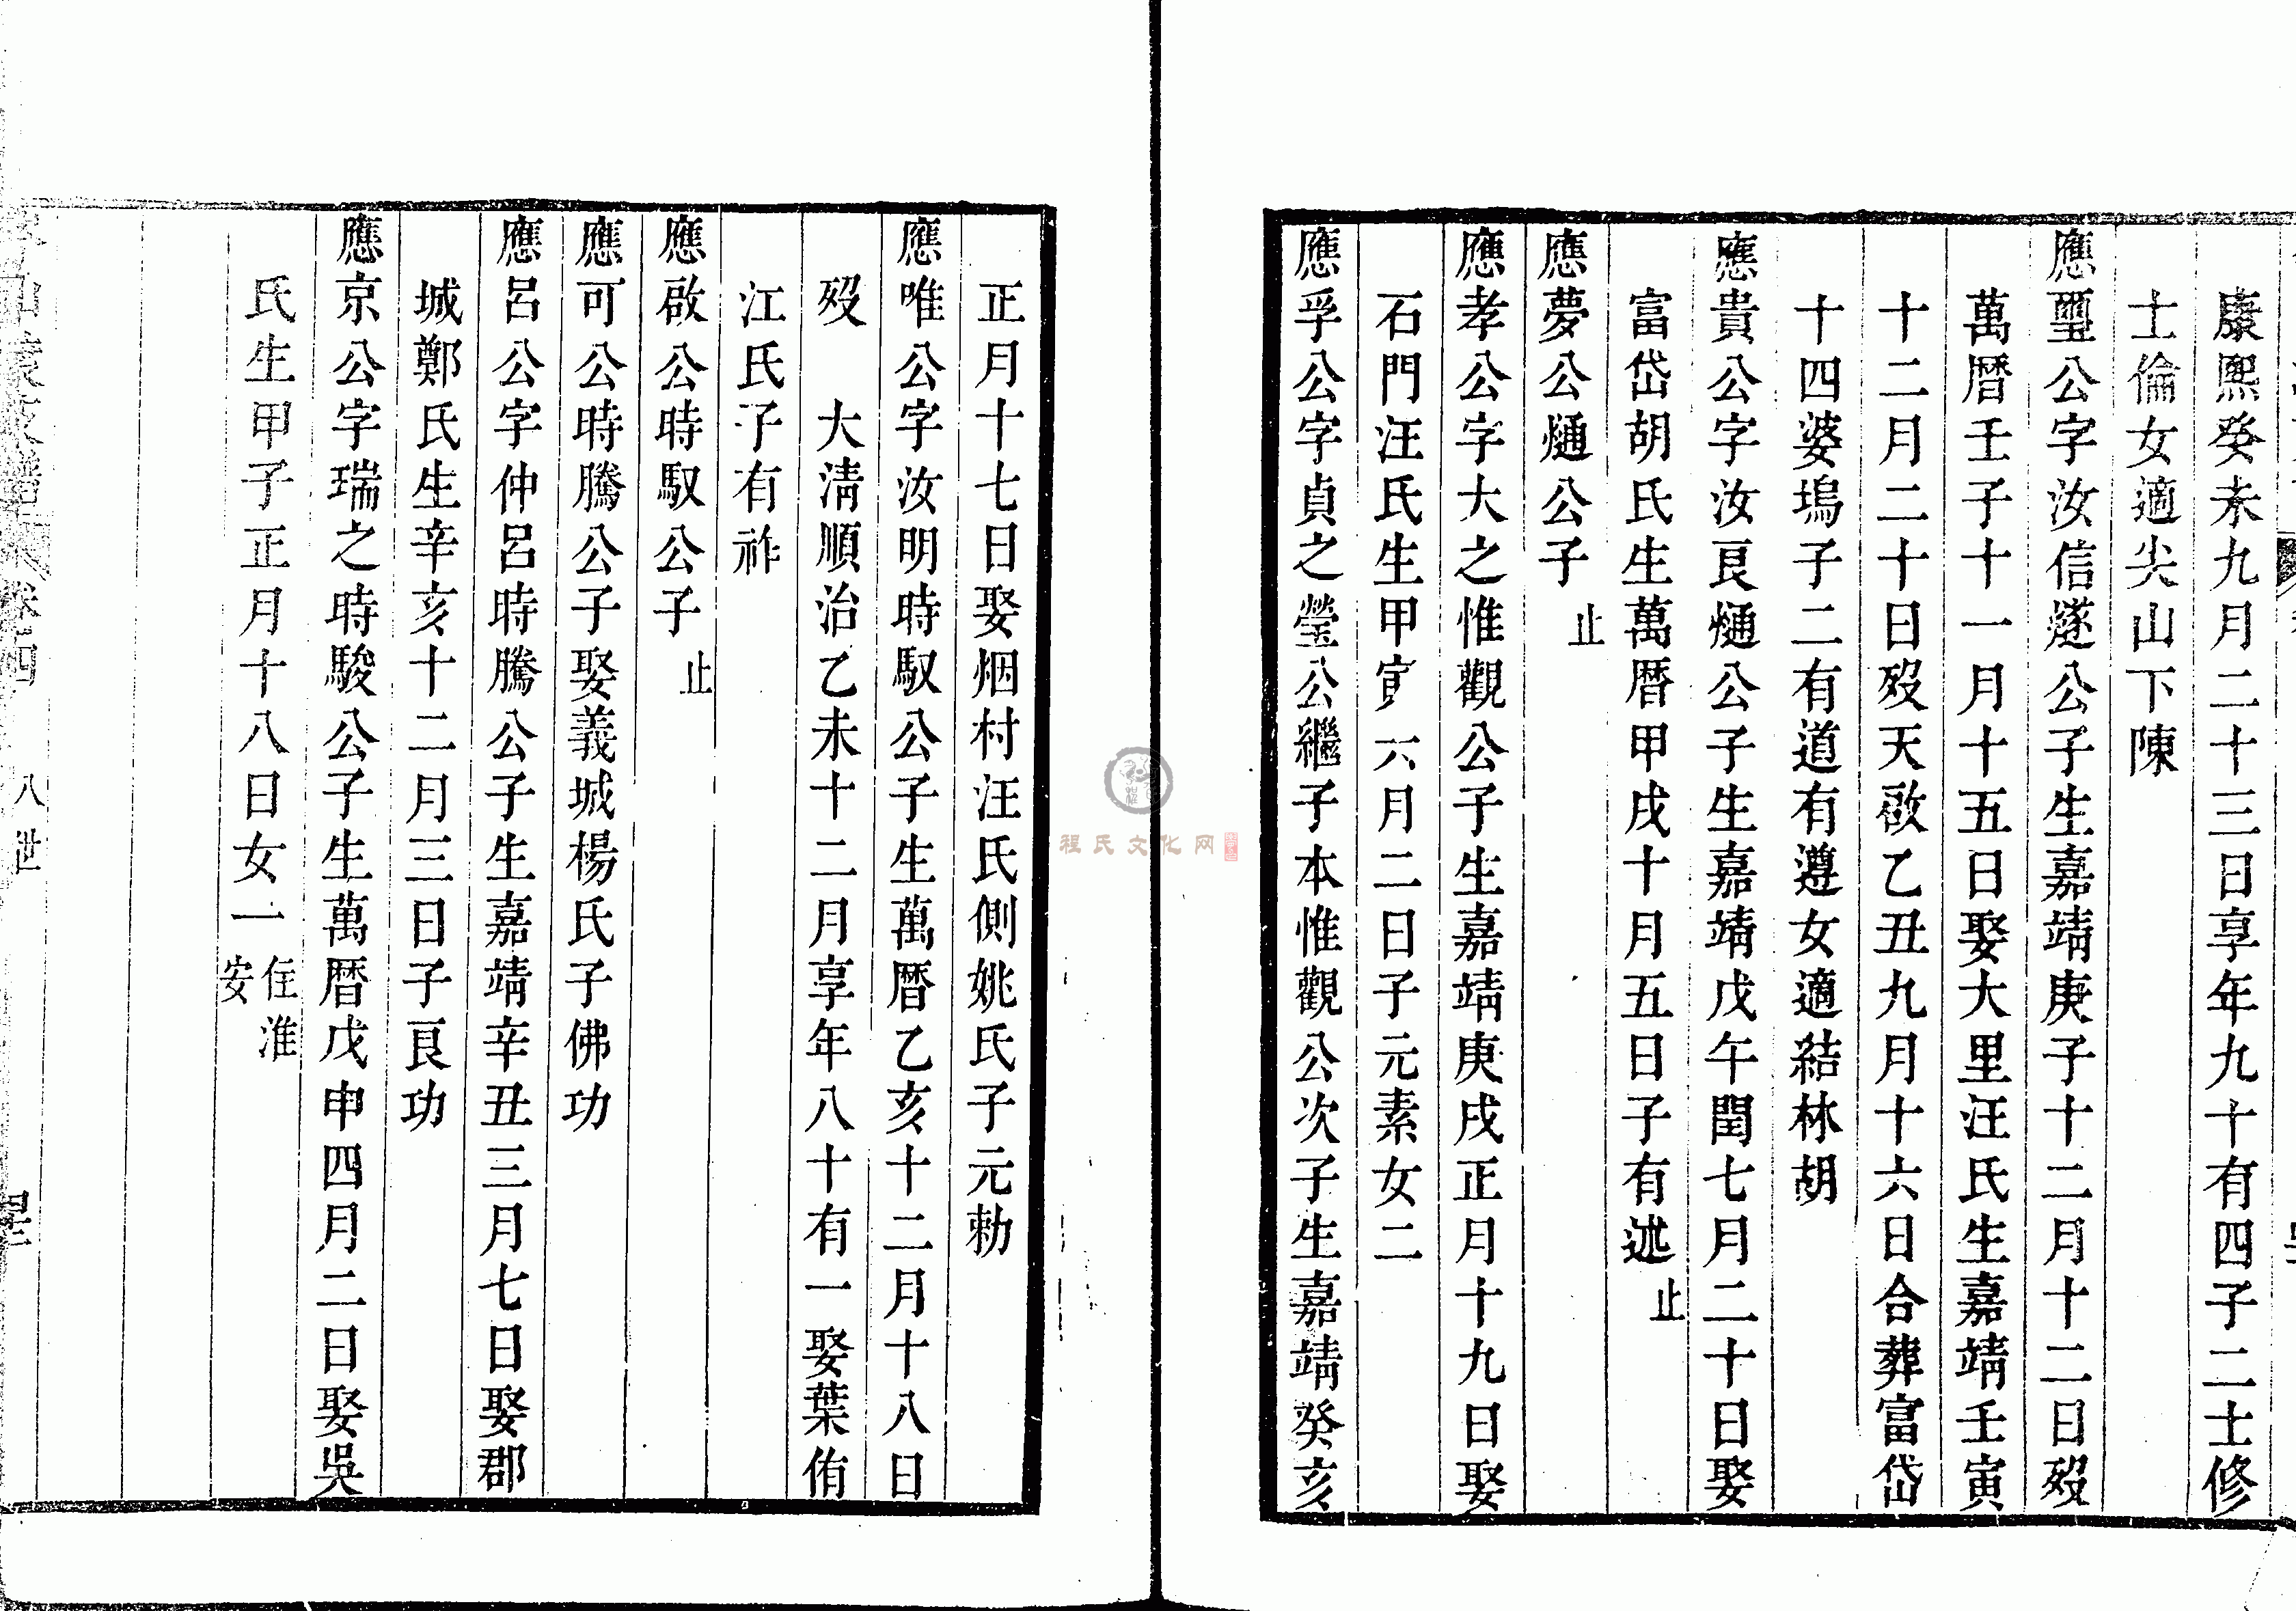 康熙癸未九月二十三日享年九十有四子二士修
士倫女適尖山下陳
應璽公字汝信燧公子生嘉靖庚子十二月十二日歿
萬曆壬子十一月十五日娶大里汪氏生嘉靖壬寅
十二月二十日歿天啟乙丑九月十六日合葬富岱
十四婆塢子二有道有遵女適結林胡
應貴公字汝良熥公子生嘉靖戊午閏七月二十日娶
富岱胡氏生萬曆甲戌十月五日子有述止
應夢公熥公子止
應孝公字大之惟觀公子生嘉靖庚戌正月十九日娶
石門汪氏生甲寅六月二日子元素女二
應孚公字貞之瑩公繼子本惟觀公次子生嘉靖癸亥
正月十七日娶烟村汪氏側姚氏子元勅
應唯公字汝明時馭公子生萬曆乙亥十二月十八日
歿 大淸順治乙未十二月享年八十有一娶葉侑
江氏子有祚
應啟公時馭公子止
應可公時騰公子娶義城楊氏子佛功
應呂公字仲呂時騰公子生嘉靖辛丑三月七日娶郡
城鄭氏生辛亥十二月三日子良功
應京公字瑞之時駿公子生萬曆戊申四月二日娶吳
氏生甲子正月十八日女一住淮安
卷四 八世
程氏文化网